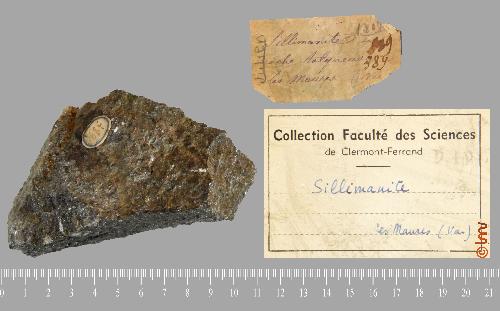 Sillimanite
389
les Maures
Collection Faculté des Sciences
de Clermont-Ferrand
Sillimanite
les Maures (Var)
0 1 2 3 4 5 6 7 8 9 10 11 12 13 14 15 16 17 18 19 20 21